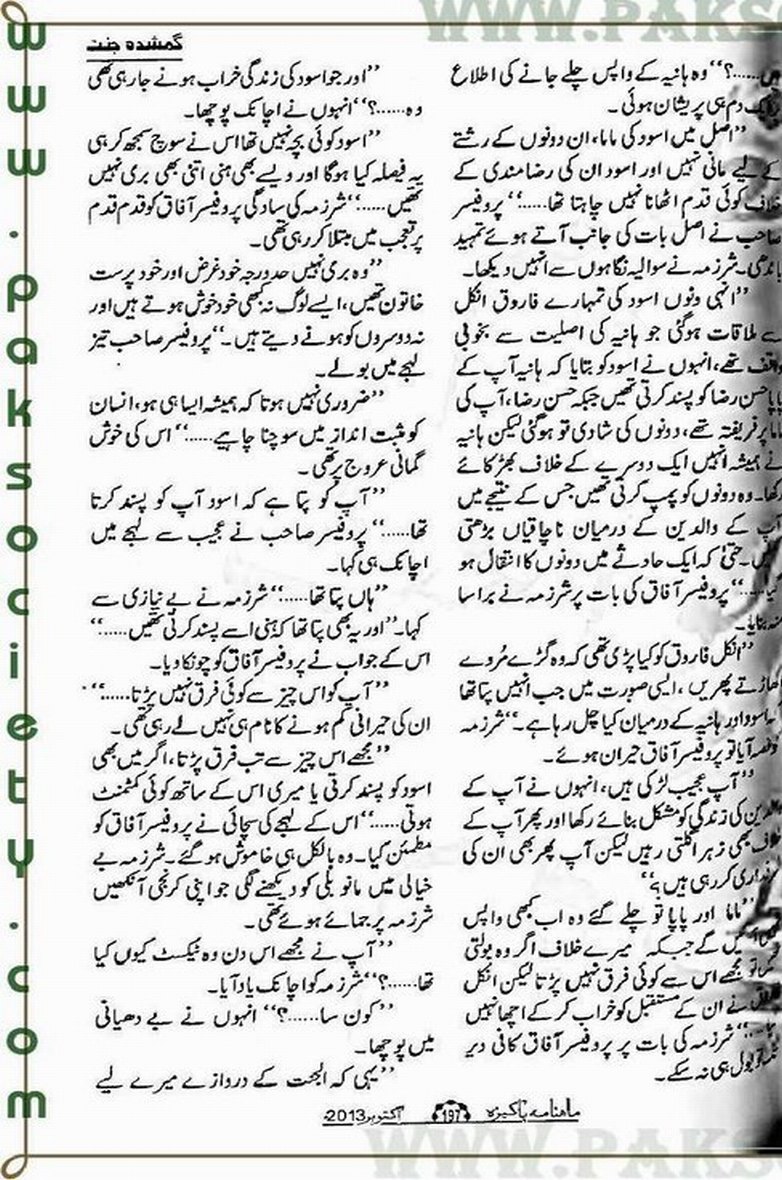 گمشدہ جنت
ہیں......؟‘‘ وہ ہانیہ کے واپس چلے جانے کی اطلاع
دم ہی پریشان ہوئی۔
’’اصل میں اسود کی ماما، ان دونوں کے رشتے
کے لیے مانی نہیں اور اسود ان کی رضا مندی کے
خلاف کوئی قدم اٹھانا نہیں چاہتا تھا......‘‘ پروفیسر
صاحب نے اصل بات کی جانب آتے ہوئے تمہید
باندھی۔ شرزمہ نے سوالیہ نگاہوں سے انہیں دیکھا۔
’’انہی دنوں اسود کی تمہارے فاروق انکل
سے ملاقات ہوگئی جو ہانیہ کی اصلیت سے بخوبی
واقف تھے، انہوں نے اسود کو بتایا کہ ہانیہ آپ کے
پاپا حسن رضا کو پسند کرتی تھیں جبکہ حسن رضا، آپ کی
ماما پر فریفتہ تھے، دونوں کی شادی تو ہوگئی لیکن ہانیہ
نے ہمیشہ انہیں ایک دوسرے کے خلاف بھڑکائے
رکھا۔ وہ دونوں کو پمپ کرتی تھیں جس کے نتیجے میں
آپ کے والدین کے درمیان ناچاقیاں بڑھتی
گئیں۔ حتیٰ کہ ایک حادثے میں دونوں کا انتقال ہو
گیا......‘‘ پروفیسر آفاق کی بات پر شرزمہ نے برا سا
منہ بنایا۔
’’انکل فاروق کو کیا پڑی تھی کہ وہ گڑے مُردے
اکھاڑتے پھریں، ایسی صورت میں جب انہیں پتا تھا
کہ اسود اور ہانیہ کے درمیان کیا چل رہا ہے۔‘‘ شرزمہ
کو غصہ آیا تو پروفیسر آفاق حیران ہوئے۔
’’آپ عجیب لڑکی ہیں، انہوں نے آپ کے
والدین کی زندگی کو مشکل بنائے رکھا اور پھر آپ کے
خلاف بھی زہر اگلتی رہیں لیکن آپ پھر بھی ان کی
طرفداری کر رہی ہیں؟‘‘
’’ماما اور پاپا تو چلے گئے وہ اب کبھی واپس
نہیں آئیں گے جبکہ میرے خلاف اگر وہ بولتی
تھیں تو مجھے اس سے کوئی فرق نہیں پڑتا لیکن انکل
فاروق نے ان کے مستقبل کو خراب کر کے اچھا نہیں
کیا......‘‘ شرزمہ کی بات پر پروفیسر آفاق کافی دیر
تک تو بول ہی نہ سکے۔
’’اور جو اسود کی زندگی خراب ہونے جا رہی تھی
وہ......؟‘‘ انہوں نے اچانک پوچھا۔
’’اسود کوئی بچہ نہیں تھا اس نے سوچ سمجھ کر ہی
یہ فیصلہ کیا ہوگا اور ویسے بھی ہنی اتنی بھی بری نہیں
تھیں......‘‘ شرزمہ کی سادگی پروفیسر آفاق کو قدم قدم
پر تعجب میں مبتلا کر رہی تھی۔
’’وہ بری نہیں حد درجہ خود غرض اور خود پرست
خاتون تھیں، ایسے لوگ نہ کبھی خود خوش ہوتے ہیں اور
نہ دوسروں کو ہونے دیتے ہیں۔‘‘ پروفیسر صاحب تیز
لہجے میں بولے۔
’’ضروری نہیں ہوتا کہ ہمیشہ ایسا ہی ہو، انسان
کو مثبت انداز میں سوچنا چاہیے......‘‘ اس کی خوش
گمانی عروج پر تھی۔
’’آپ کو پتا ہے کہ اسود آپ کو پسند کرتا
تھا......‘‘ پروفیسر صاحب نے عجیب سے لہجے میں
اچانک ہی کہا۔
’’ہاں پتا تھا......‘‘ شرزمہ نے بے نیازی سے
کہا۔ ’’اور یہ بھی پتا تھا کہ ہنی اسے پسند کرتی تھیں......‘‘
اس کے جواب نے پروفیسر آفاق کو چونکا دیا۔
’’آپ کو اس چیز سے کوئی فرق نہیں پڑتا......‘‘
ان کی حیرانی کم ہونے کا نام ہی نہیں لے رہی تھی۔
’’مجھے اس چیز سے تب فرق پڑتا، اگر میں بھی
اسود کو پسند کرتی یا میری اس کے ساتھ کوئی کمٹمنٹ
ہوتی......‘‘ اس کے لہجے کی سچائی نے پروفیسر آفاق کو
مطمئن کیا۔ وہ بالکل ہی خاموش ہو گئے۔ شرزمہ بے
خیالی میں مانو بلی کو دیکھنے لگی جو اپنی کرنجی آنکھیں
شرزمہ پر جمائے ہوئے تھی۔
’’آپ نے مجھے اس دن وہ ٹیکسٹ کیوں کیا
تھا......؟‘‘ شرزمہ کو اچانک یاد آیا۔
’’کون سا......؟‘‘ انہوں نے بے دھیانی
میں پوچھا۔
’’یہی کہ الجنت کے دروازے میرے لیے
ماہنامہ پاکیزہ 197 اکتوبر 2013ء
www.paksociety.com
WWW.PAKSO
WWW.PAKSO